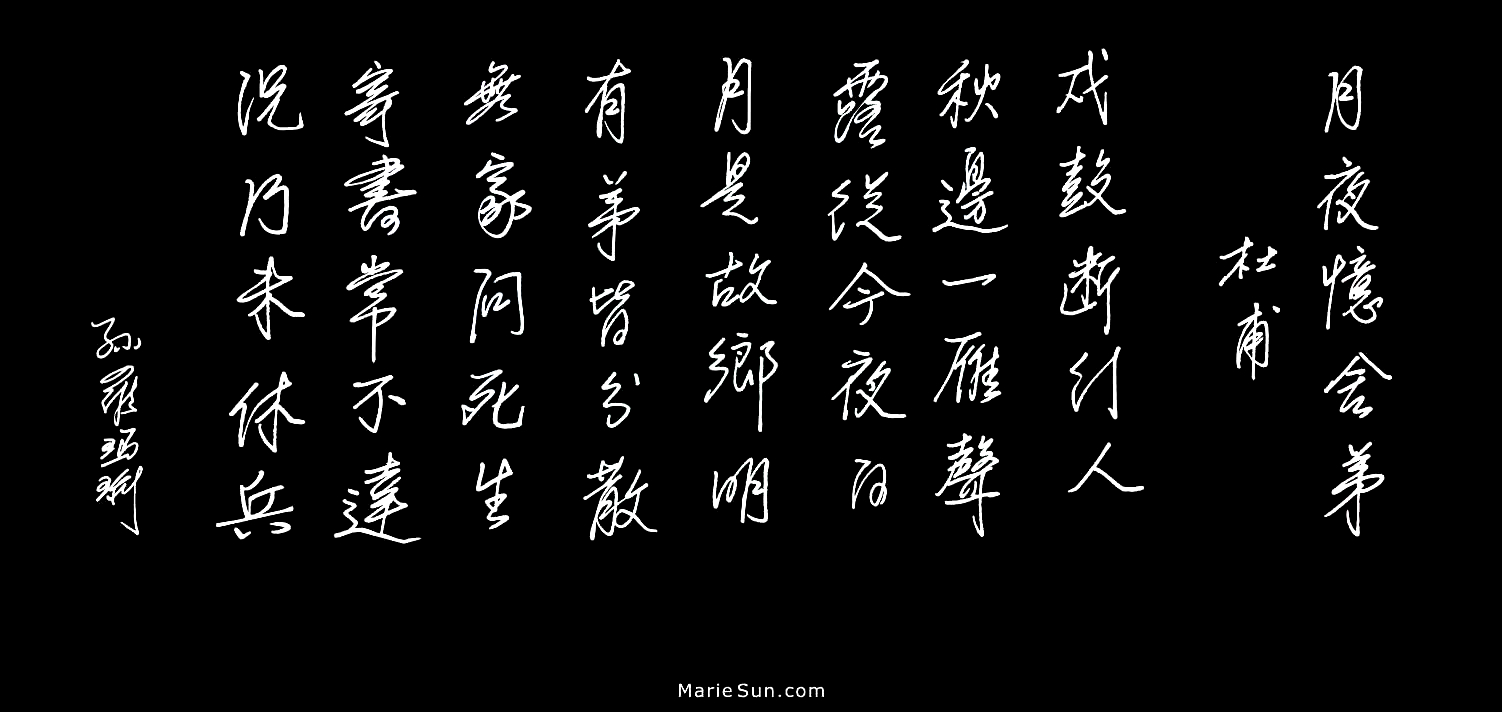 月夜憶舍弟
杜甫
戍鼓断行人
秋邊一雁聲
露從今夜白
月是故鄉明
有弟皆分散
無家問死生
寄書常不達
況乃未休兵
孫羅瑪琍
MarieSun.com